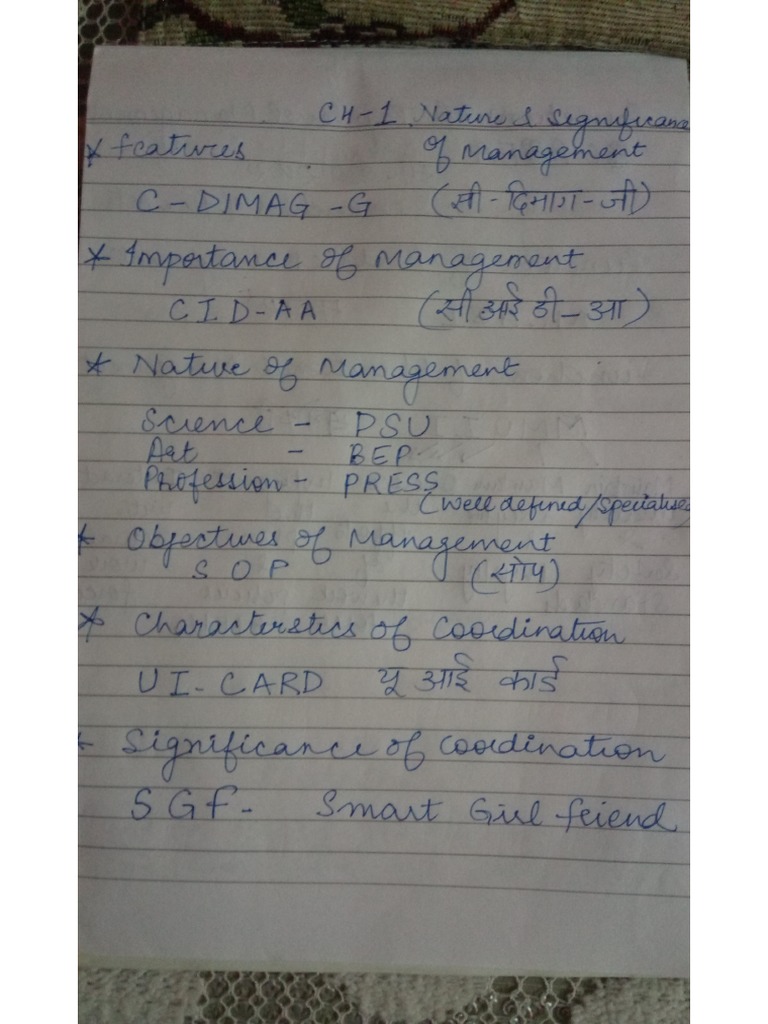 CH-1 Nature & Significance
* features of Management
C-DIMAG-G (सी-दिमाग-जी)
* Importance of Management
CID-AA (सी आई डी-आ)
* Nature of Management
Science - PSU
Art - BEP
Profession - PRESS
(Well defined/Specialise
* Objectives of Management
SOP (सोप)
* Characterstics of Coordination
UI-CARD यू आई कार्ड
* Significance of Coordination
SGF- Smart Girl friend